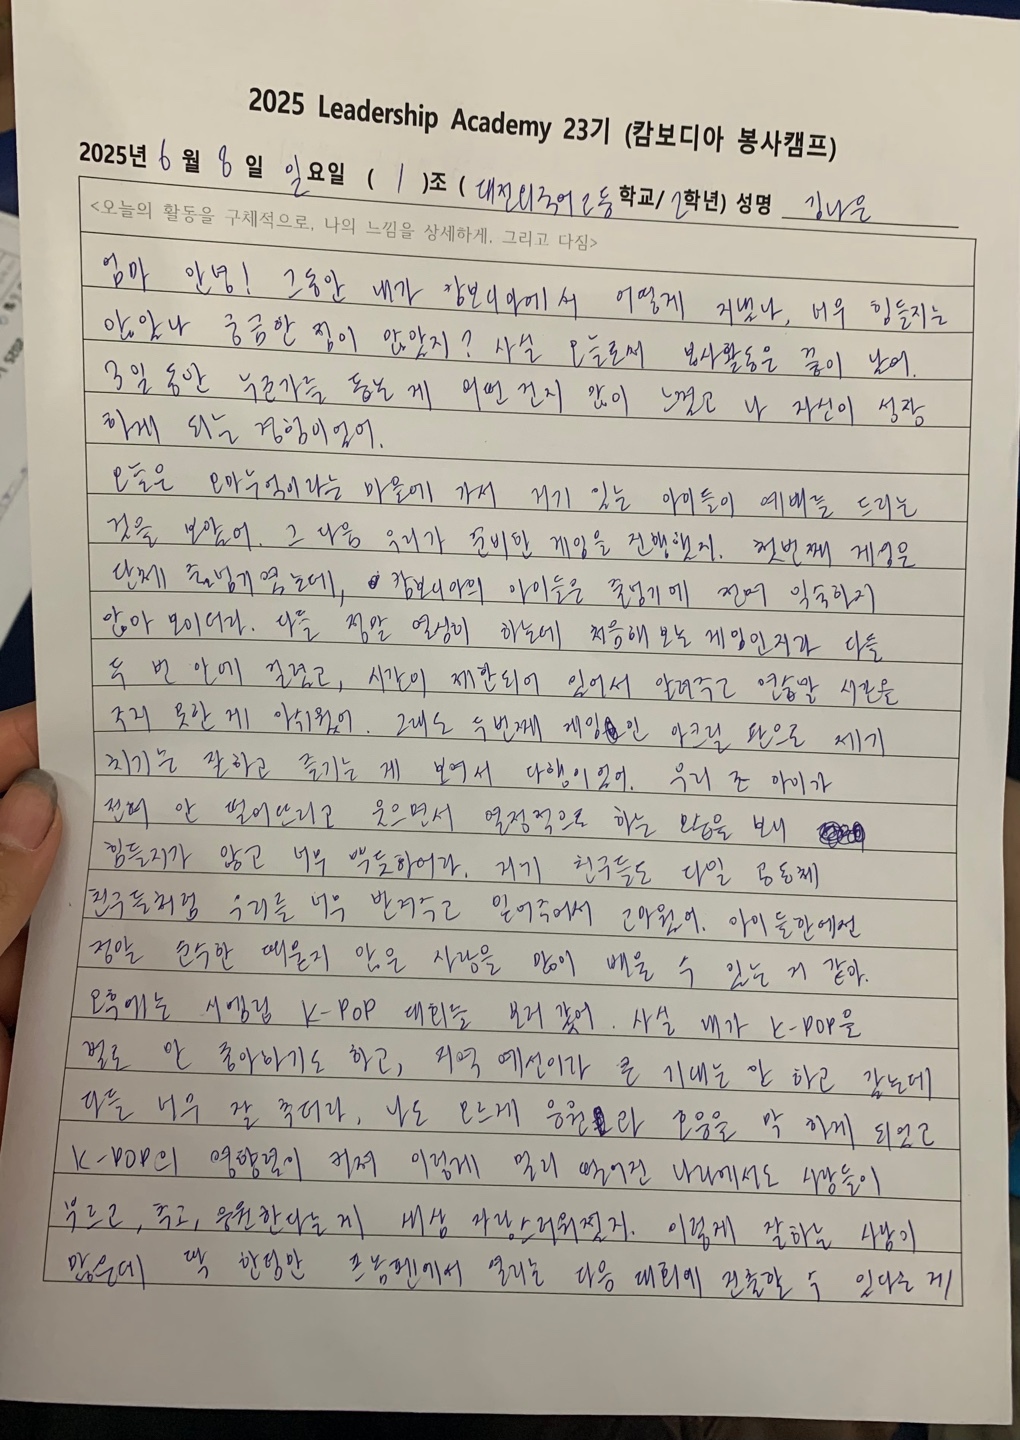 2025 Leadership Academy 23기 (캄보디아 봉사캠프)
2025년 6 월 8 일 일요일 ( 1 )조 ( 대전외국어고등학교/ 2학년) 성명 김나은
<오늘의 활동을 구체적으로, 나의 느낌을 상세하게. 그리고 다짐>
엄마 안녕! 그동안 내가 캄보디아에서 어떻게 지냈나, 너무 힘들지는
않았나 궁금한 점이 많았지? 사실 오늘로써 봉사활동은 끝이 났어.
3일 동안 누군가를 돕는 게 어떤 건지 많이 느꼈고 나 자신이 성장
하게 되는 경험이었어.
오늘은 오마누억이라는 마을에 가서 거기 있는 아이들이 예배를 드리는
것을 보았어. 그 다음 우리가 준비한 게임을 진행했지. 첫번째 게임은
단체 줄넘기였는데, 캄보디아의 아이들은 줄넘기에 전혀 익숙하지
않아 보이더라. 다들 정말 열심히 하는데 처음해 보는 게임인지라 다들
두 번 안에 걸렸고, 시간이 제한되어 있어서 알려주고 연습할 시간을
주지 못한 게 아쉬웠어. 그래도 두번째 게임인 아크릴 판으로 제기
치기는 잘하고 즐기는 게 보여서 다행이었어. 우리 조 아이가
전혀 안 떨어뜨리고 웃으면서 열정적으로 하는 모습을 보니
힘들지가 않고 너무 뿌듯하더라. 거기 친구들도 다일 공동체
친구들처럼 우리를 너무 반겨주고 믿어주어서 고마웠어. 아이들한에선
정말 순수한 때묻지 않은 사랑을 많이 배울 수 있는 거 같아.
오후에는 시엠립 K-POP 대회를 보러 갔어. 사실 내가 K-POP을
별로 안 좋아하기도 하고, 지역 예선이라 큰 기대는 안 하고 갔는데
다들 너무 잘 추더라, 나도 모르게 응원과 호응을 막 하게 되었고
K-POP의 영향력이 커져 이렇게 멀리 떨어진 나라에서도 사람들이
부르고, 추고, 응원한다는 게 새삼 자랑스러워졌지. 이렇게 잘하는 사람이
많은데 딱 한팀만 프놈펜에서 열리는 다음 대회에 진출할 수 있다는 게